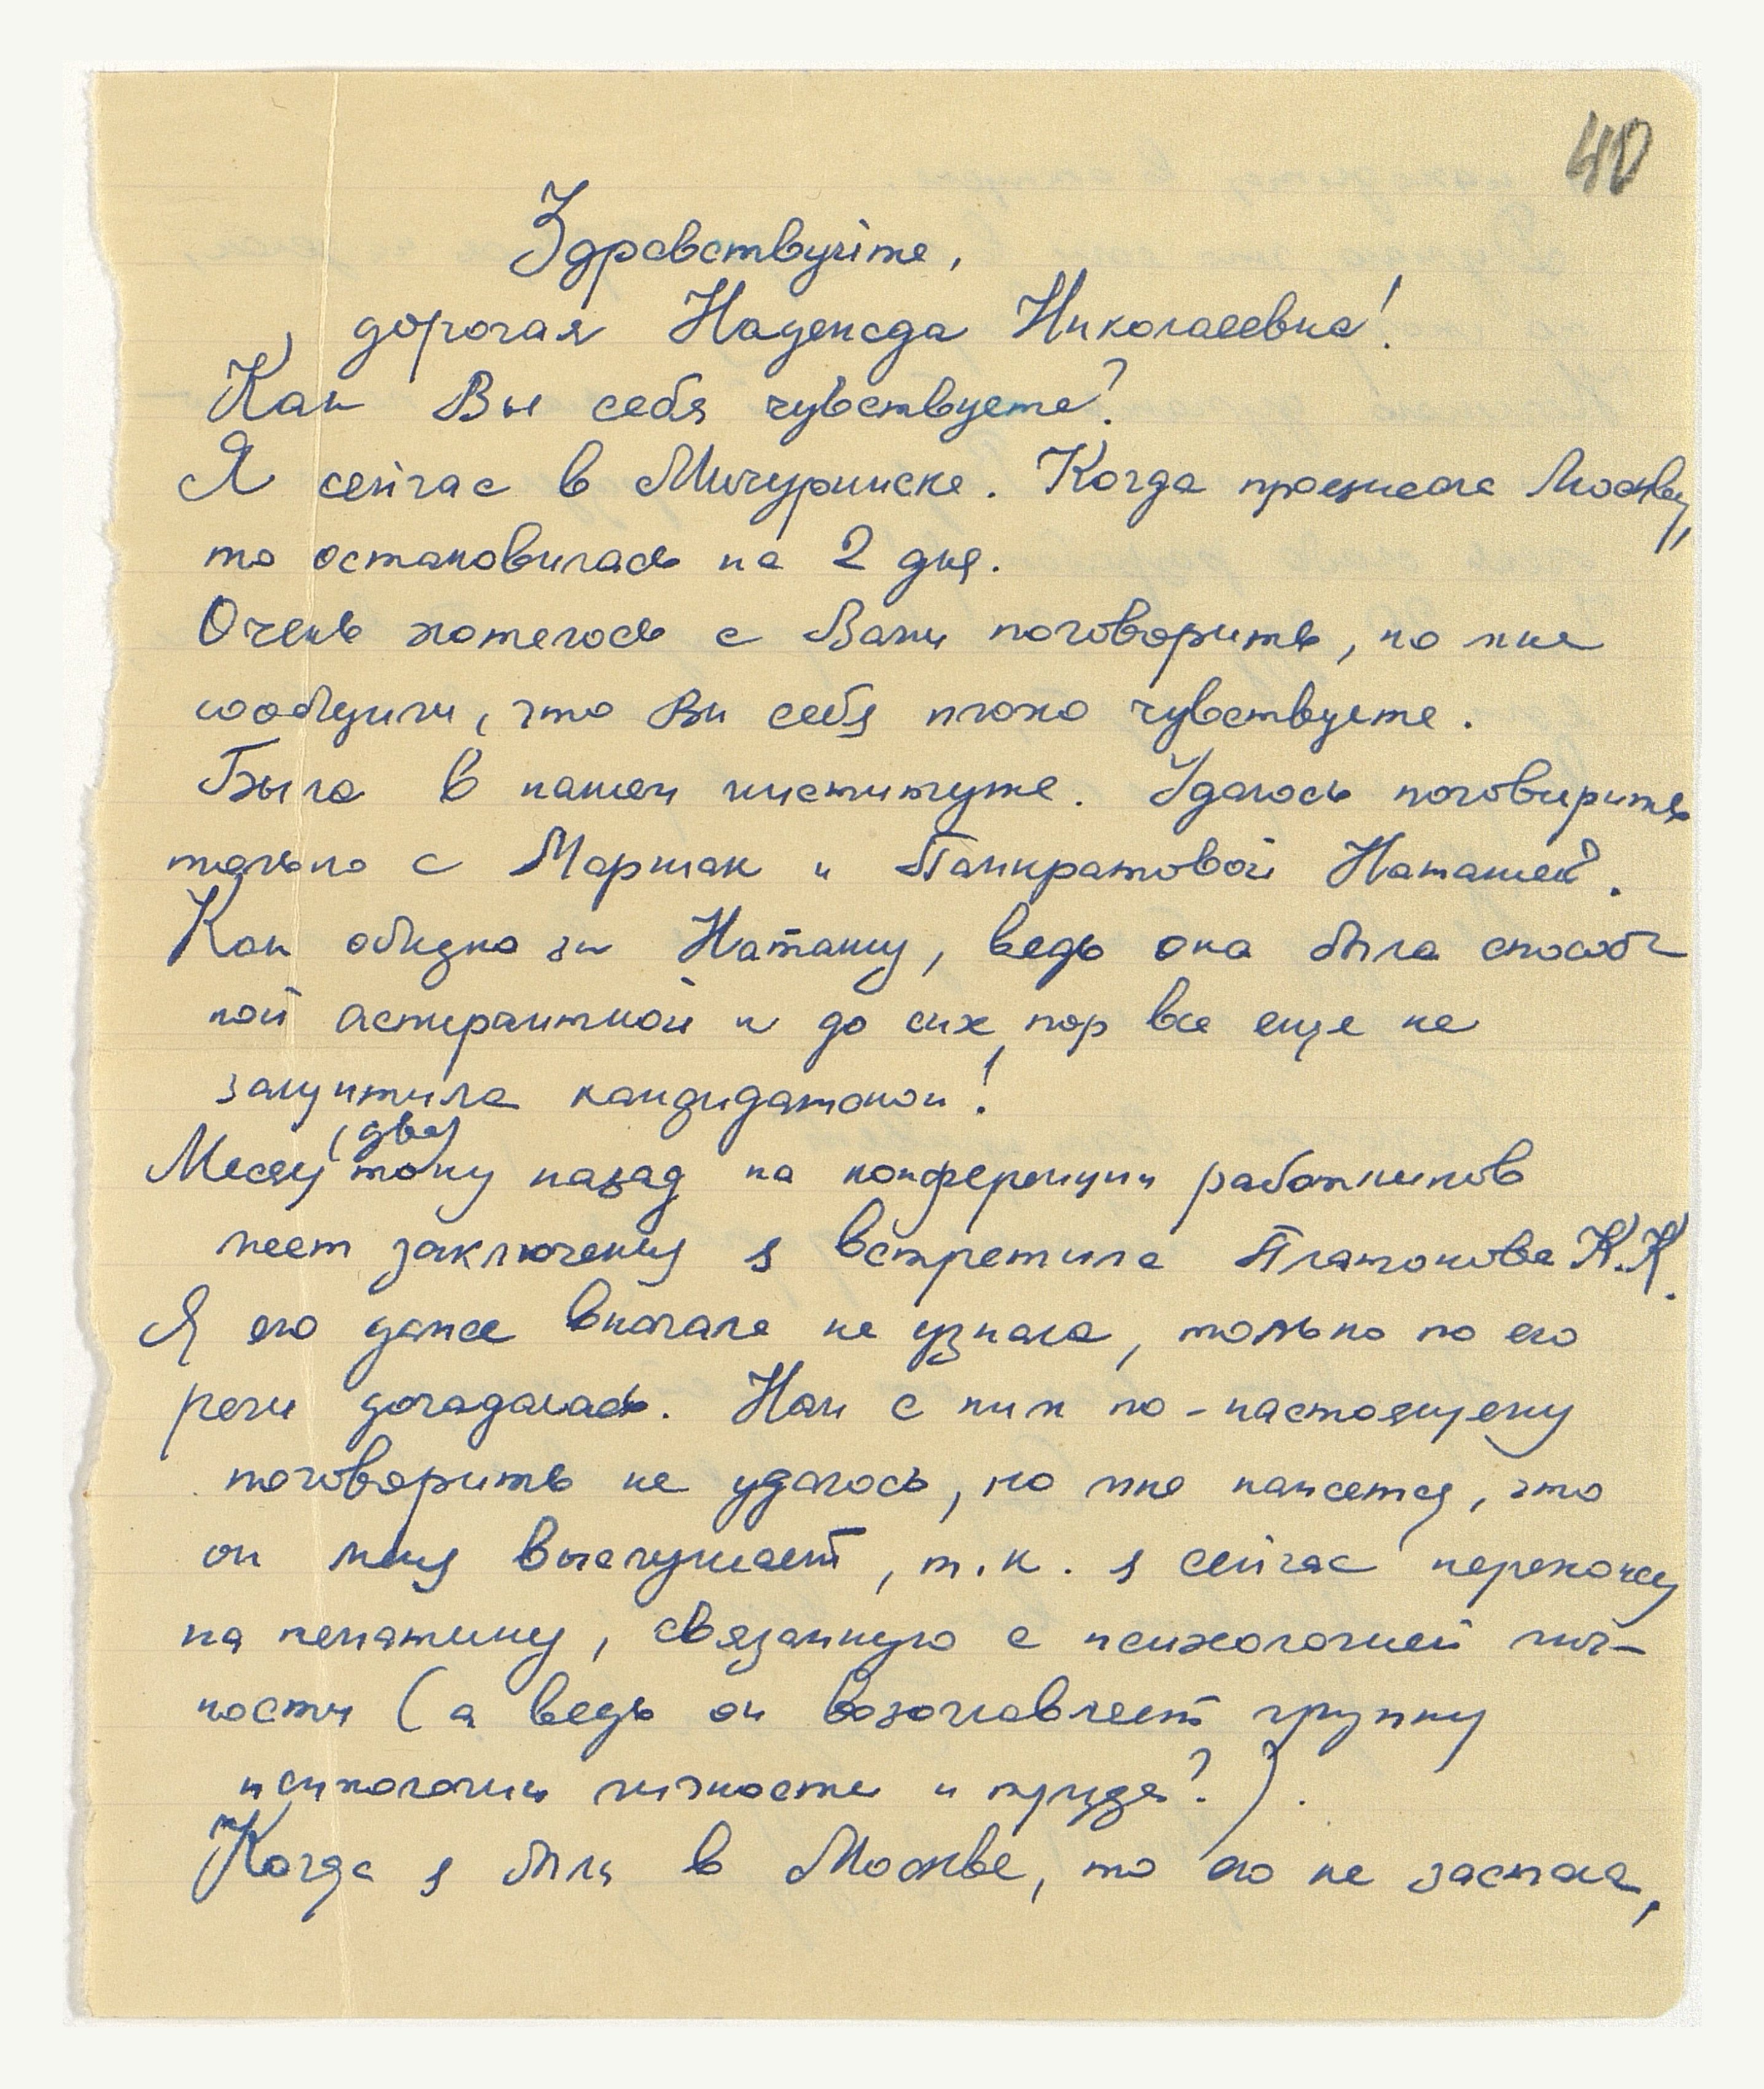 40
Здравствуйте,
дорогая Надежда Николаевна!
Как Вы себя чувствуете?
Я сейчас в Мичуринске. Когда проезжала Москву,
то остановилась на 2 дня.
Очень хотелось с Вами поговорить, но мне
сообщили, что Вы себя плохо чувствуете.
Была в нашем институте. Удалось поговорить
только с Маршак и Панкратовой Наташей.
Как обидно за Наташу, ведь она была способ-
ной аспиранткой и до сих пор все еще не
защитила кандидатской!
(два)
Месяц тому назад на конференции работников
мест заключения я встретила Платонова К.К.
Я его даже вначале не узнала, только по его
речи догадалась. Нам с ним по-настоящему
поговорить не удалось, но мне кажется, что
он меня выслушает, т.к. я сейчас перехожу
на тематику, связанную с психологией лич-
ности (а ведь он возглавляет группу
психологии личности и труда?).
Когда я была в Москве, то его не застала,